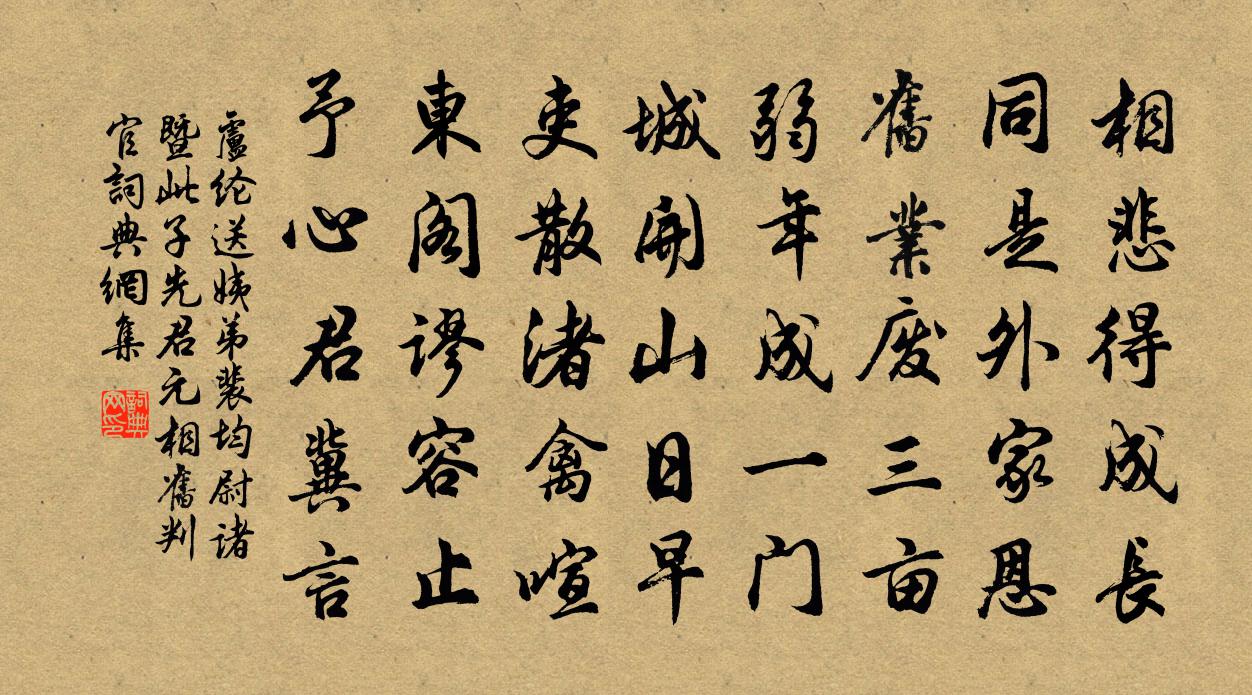 相悲得成長
同是外家恩
舊業废三亩
弱年成一门
城開山日早
吏散渚禽喧
東阁谬容止
予心君冀言
盧纶送姨弟裴均尉诸
暨此子先君元相舊判
官詞典網集
詞典
网印